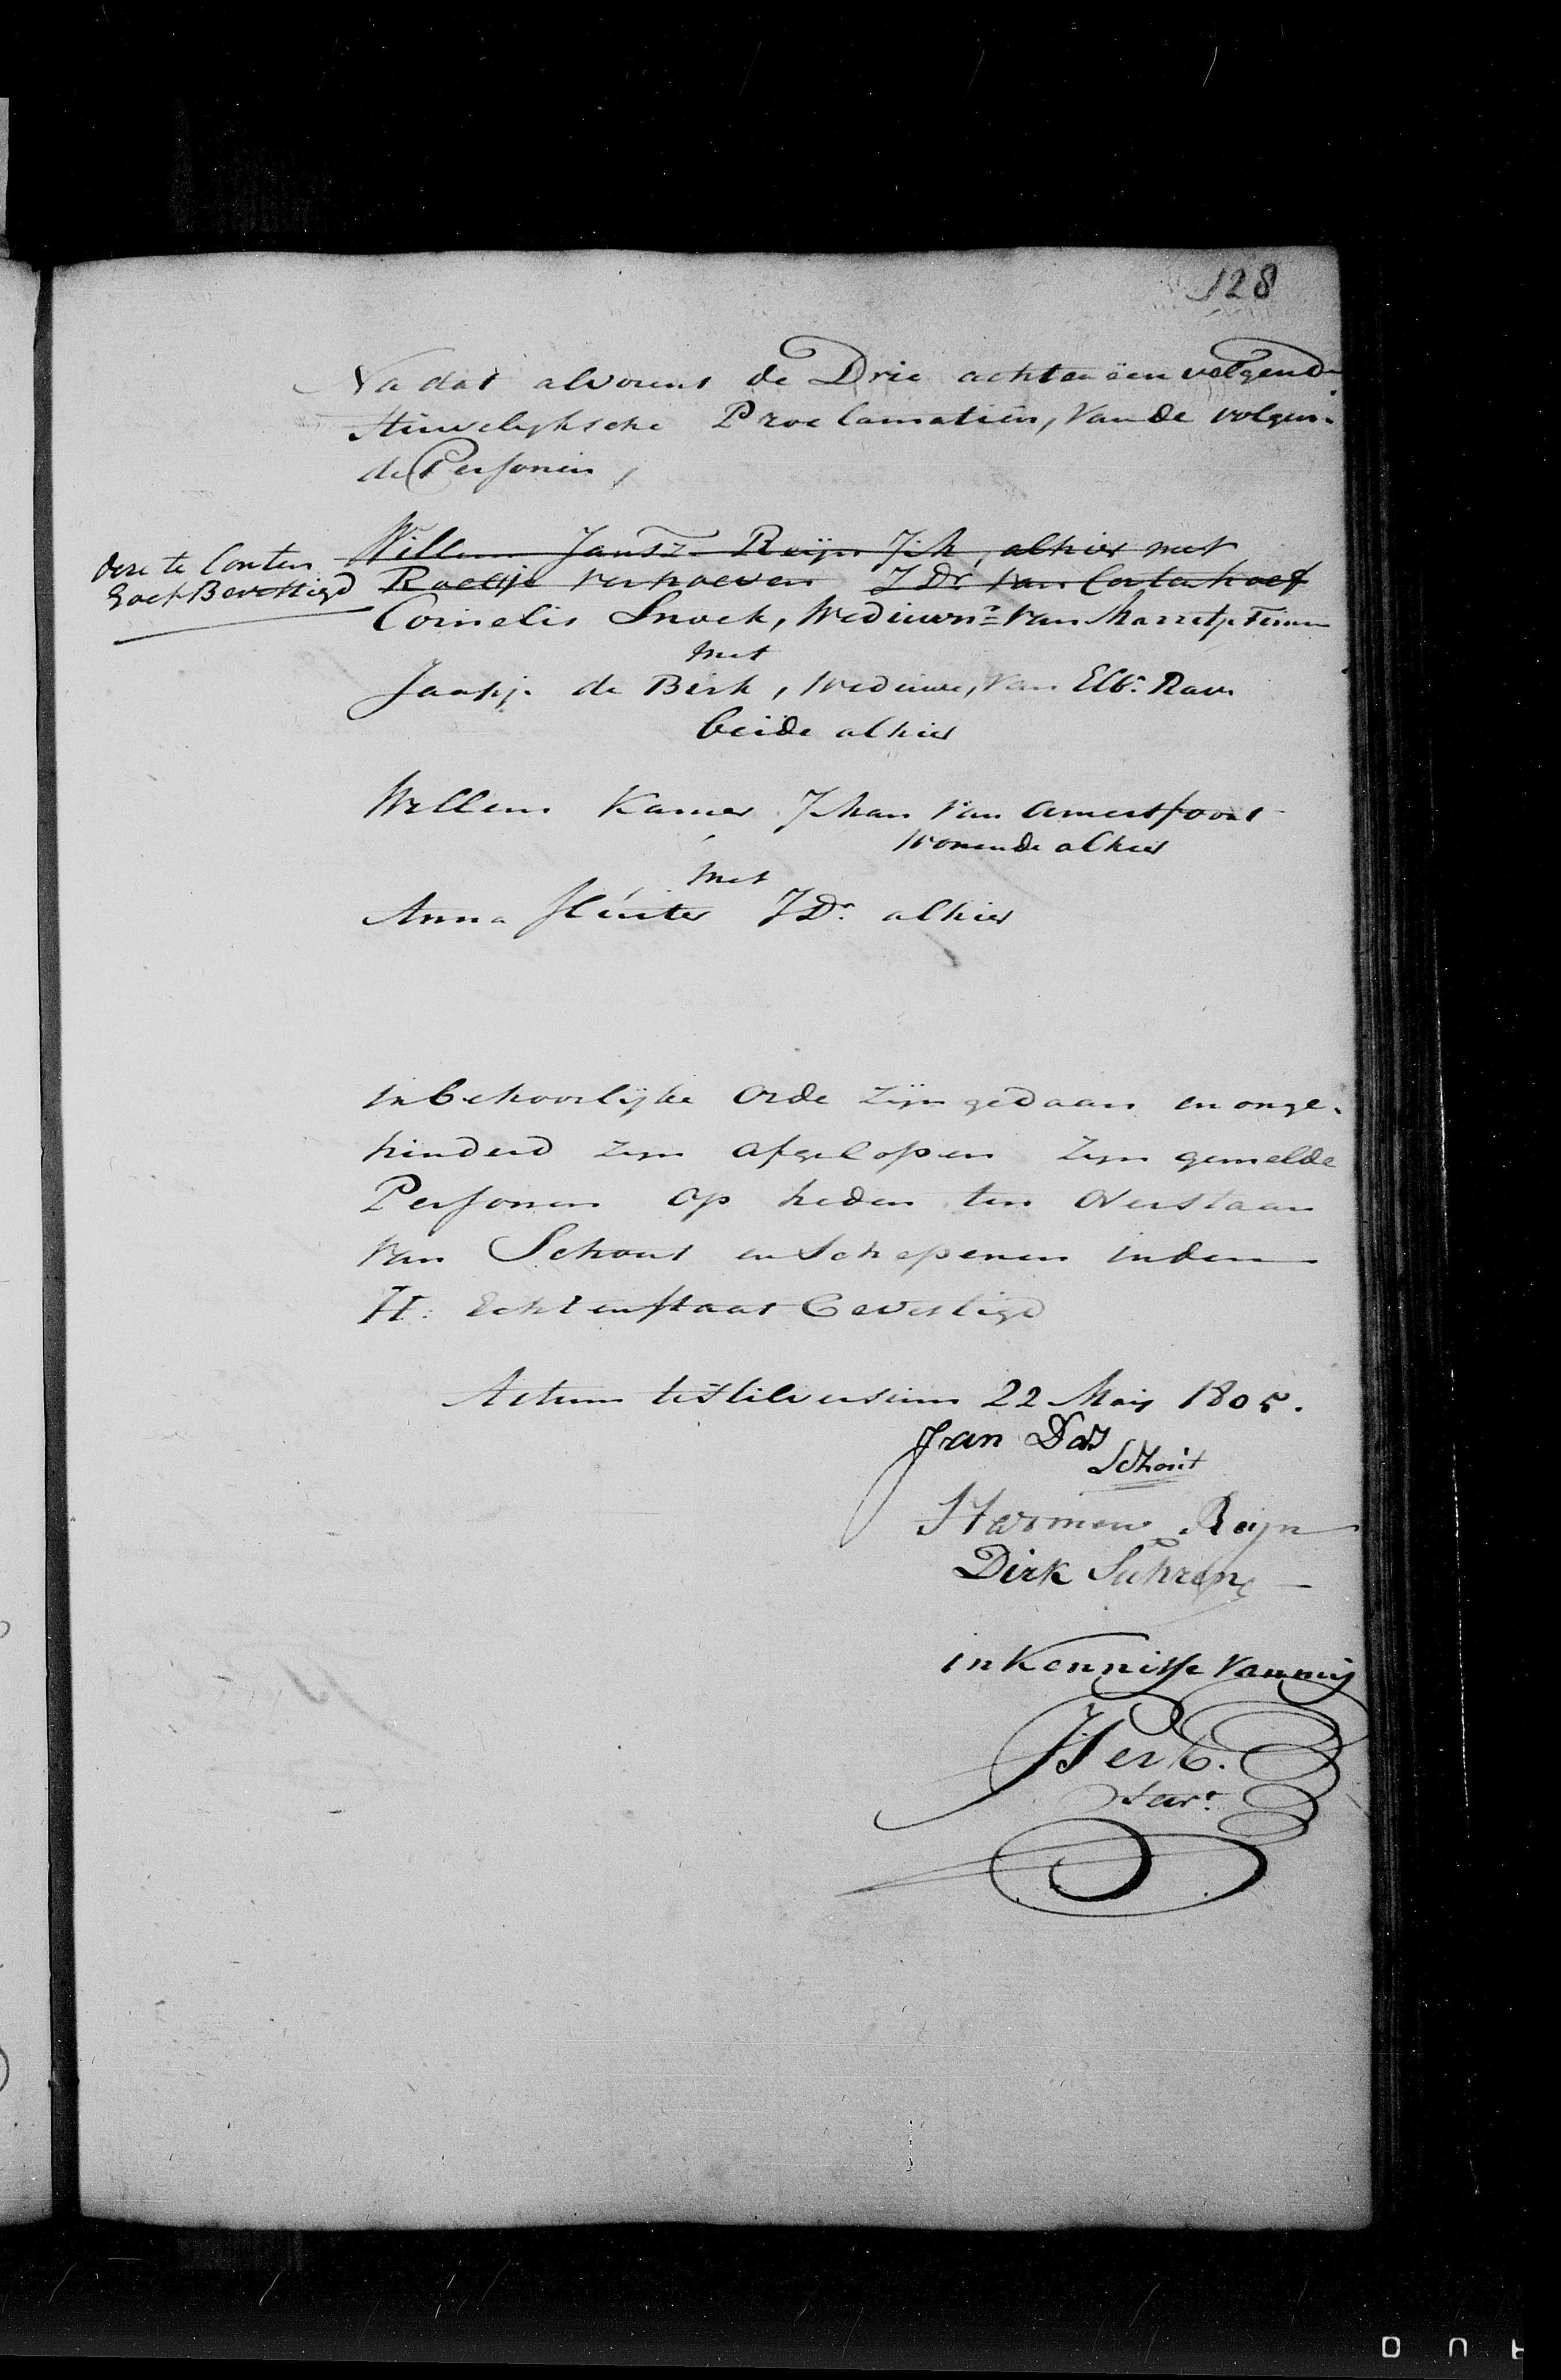 128
Na dat alvorens de Drie achter een volgend
Huwelyksche Proclamatiën, Van de volgen-
de Personen,
Deze te Corten
hoef Bevestigd
Willem Jansz. Reijn J:M, alhier met
Roeltje Verhoeven J Dr. van Cortenhoef
Cornelis Snoek, Weduwnr. Van Marretje
met
Jaapje de Birk, Weduwe, Van Elb. Raven
beide alhier
Willem Kamer J:Man Van Amersfoort
Wonende alhier
met
Anna Sluiter J Dr. alhier
in behoorlijke Orde zijn gedaan en onge-
hinderd zyn afgelopen zyn gemelde
Personen op heden ten Overstaan
Van Schout en Schepenen in den
H: Echtenstaat bevestigd
Actum te Hilversum 22 Mai 1805.
Jan Das
Schout
Harmen Reyn
Dirk
in Kennisse van mij
J Perk.
Secrt.